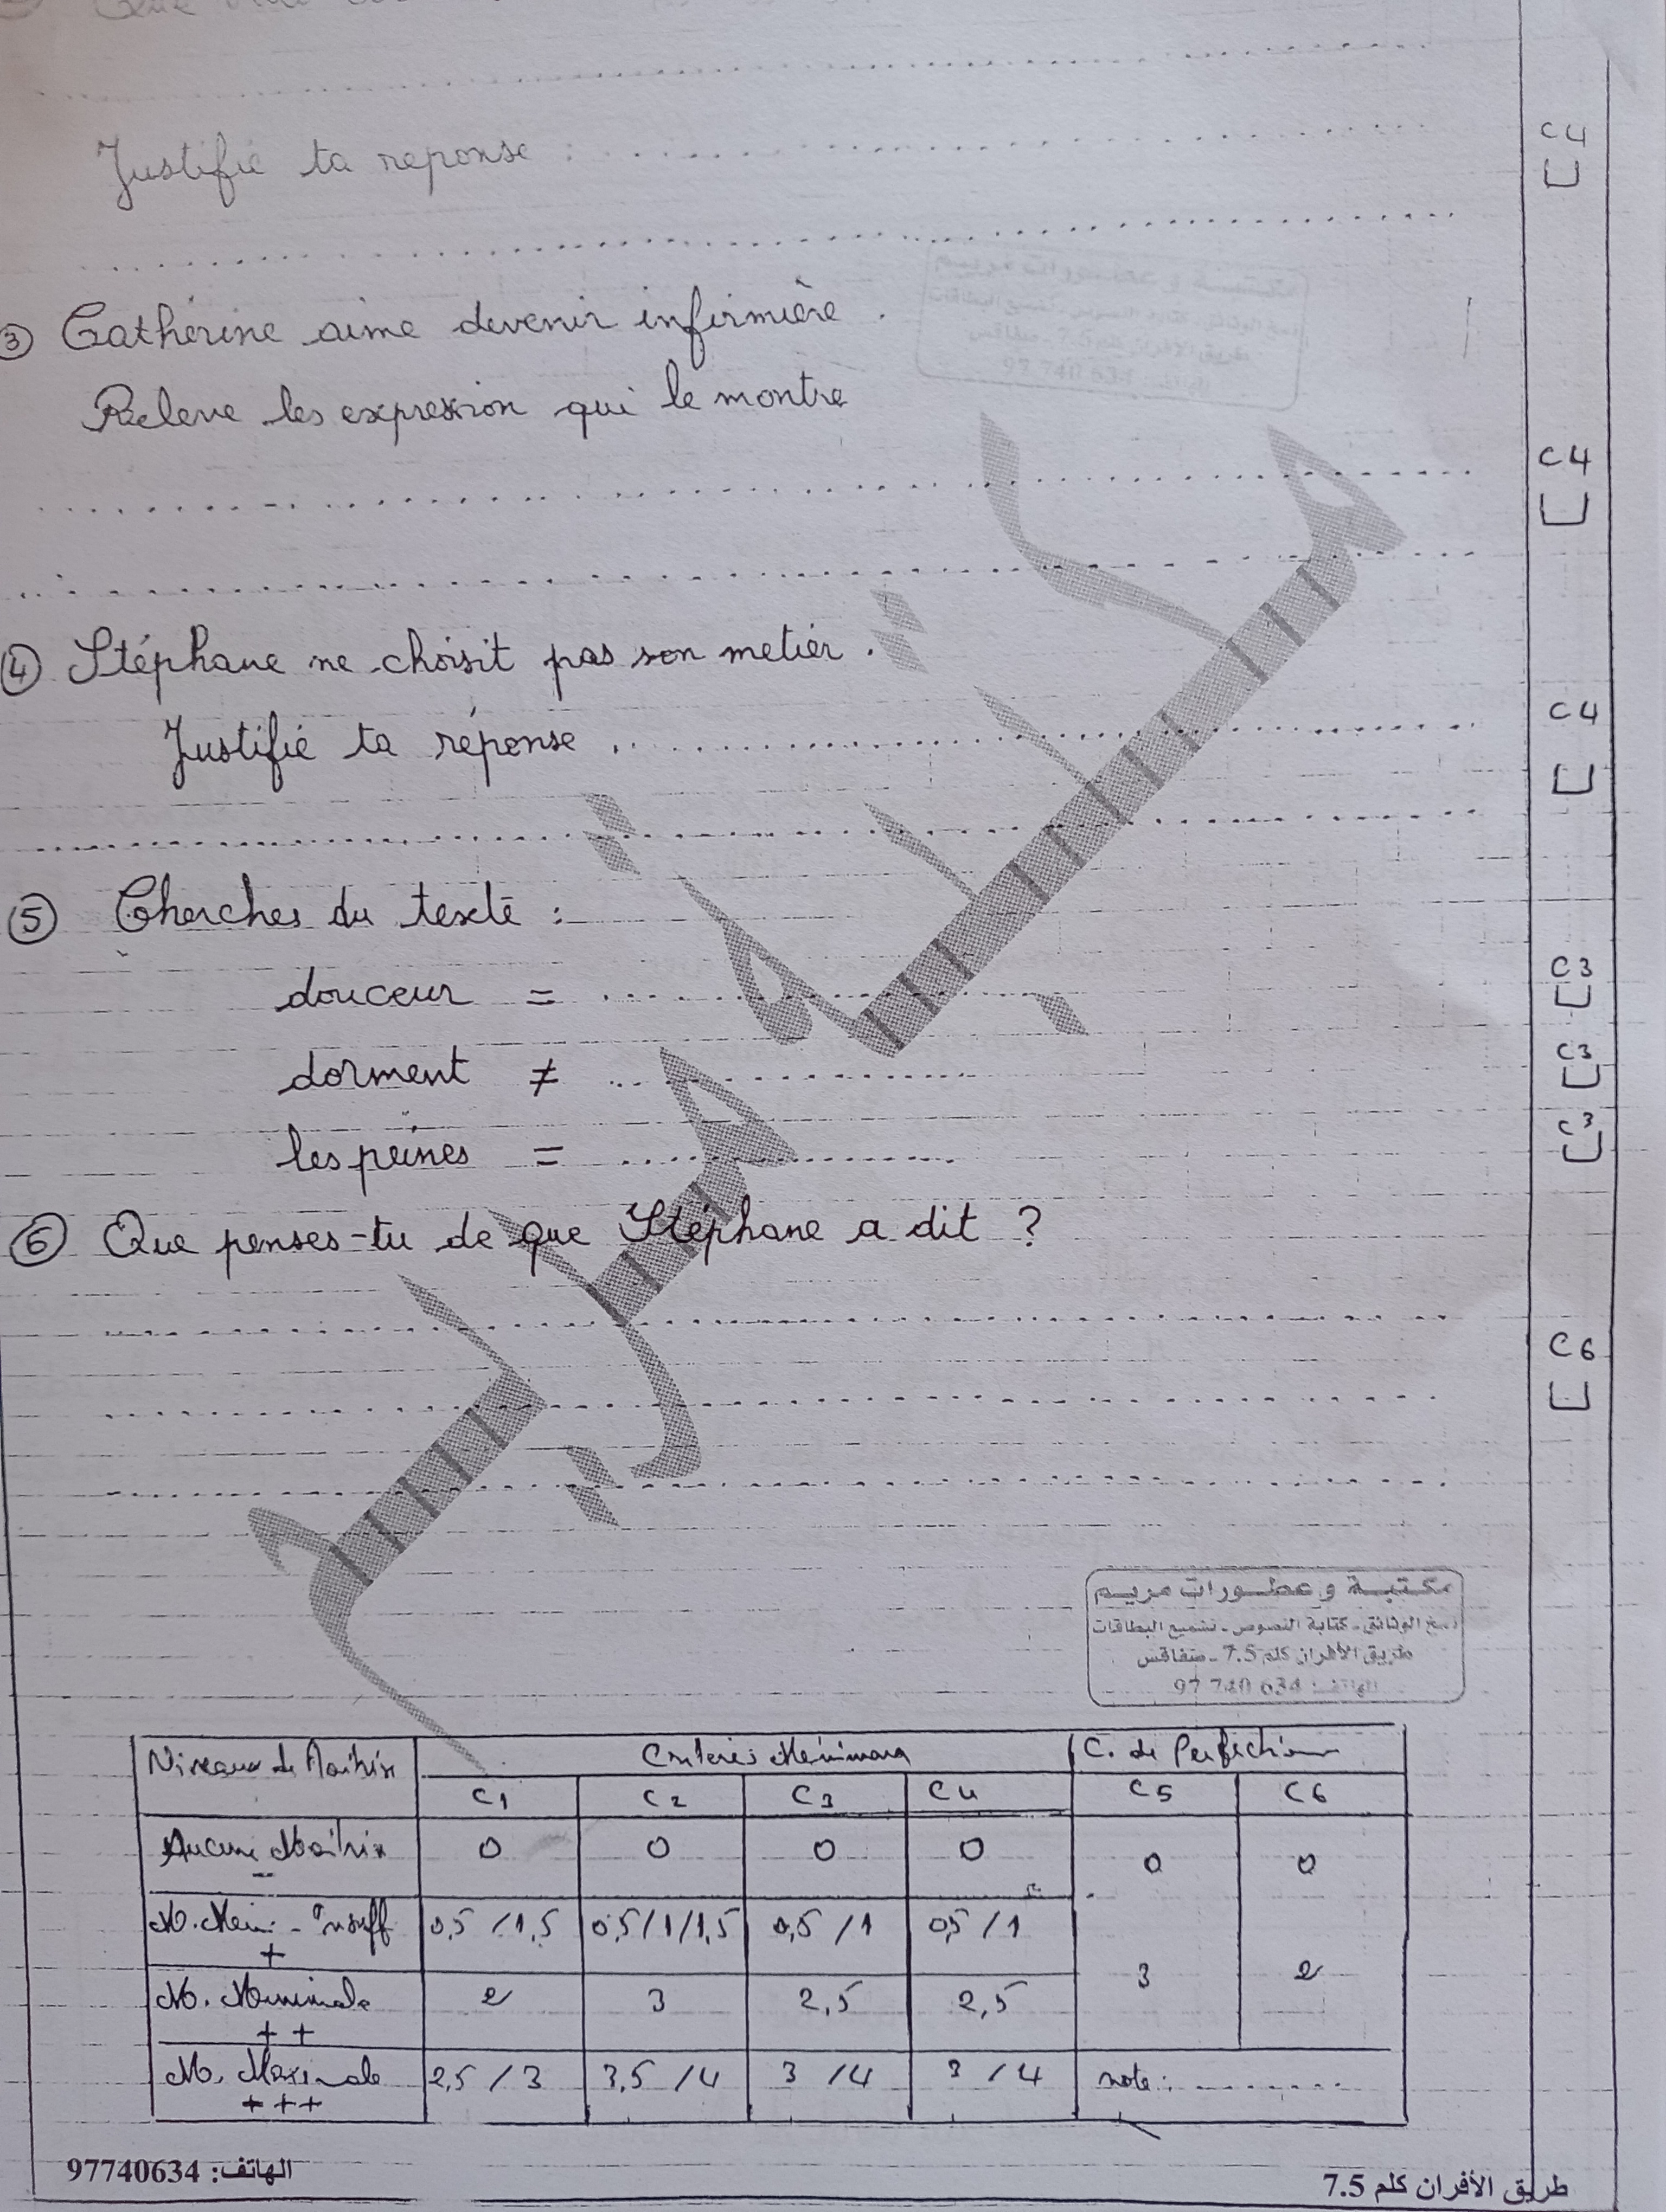 Justifie ta reponse : ..........
C4
③ Catherine aime devenir infirmière .
Releve les expression qui le montre
C4
④ Stéphane ne choisit pas son metier .
Justifie ta réponse ..........
C4
⑤ Cherches du texte :
douceur = ..........
C3
dorment ≠ ..........
C3
les peines = ..........
C3
⑥ Que penses-tu de que Stéphane a dit ?
C6
مكتبة و عطورات مريم
نسخ الوثائق - كتابة النصوص - تشميع البطاقات
طريق الأفران كلم 7.5 - صفاقس
الهاتف : 97 740 634
Niveaux de Maitrise Critères Minimaux C. de Perfection
C1 C2 C3 C4 C5 C6
Aucune Maitrise - 0 0 0 0 0 0
M. Min. Insuff + 0,5 /1,5 0,5/1/1,5 0,5 /1 0,5 /1
3 2
M. Minimale ++ 2 3 2,5 2,5
M. Maximale +++ 2,5 / 3 3,5 /4 3 /4 3 /4 note : ..........
الهاتف: 97740634
طريق الأفران كلم 7.5